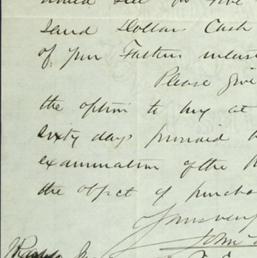 would sell for Five
sand Dollars Cash
of your Fathers
Please give
the option to buy at
sixty days
examination of the
the object of purcha
Yours very
John